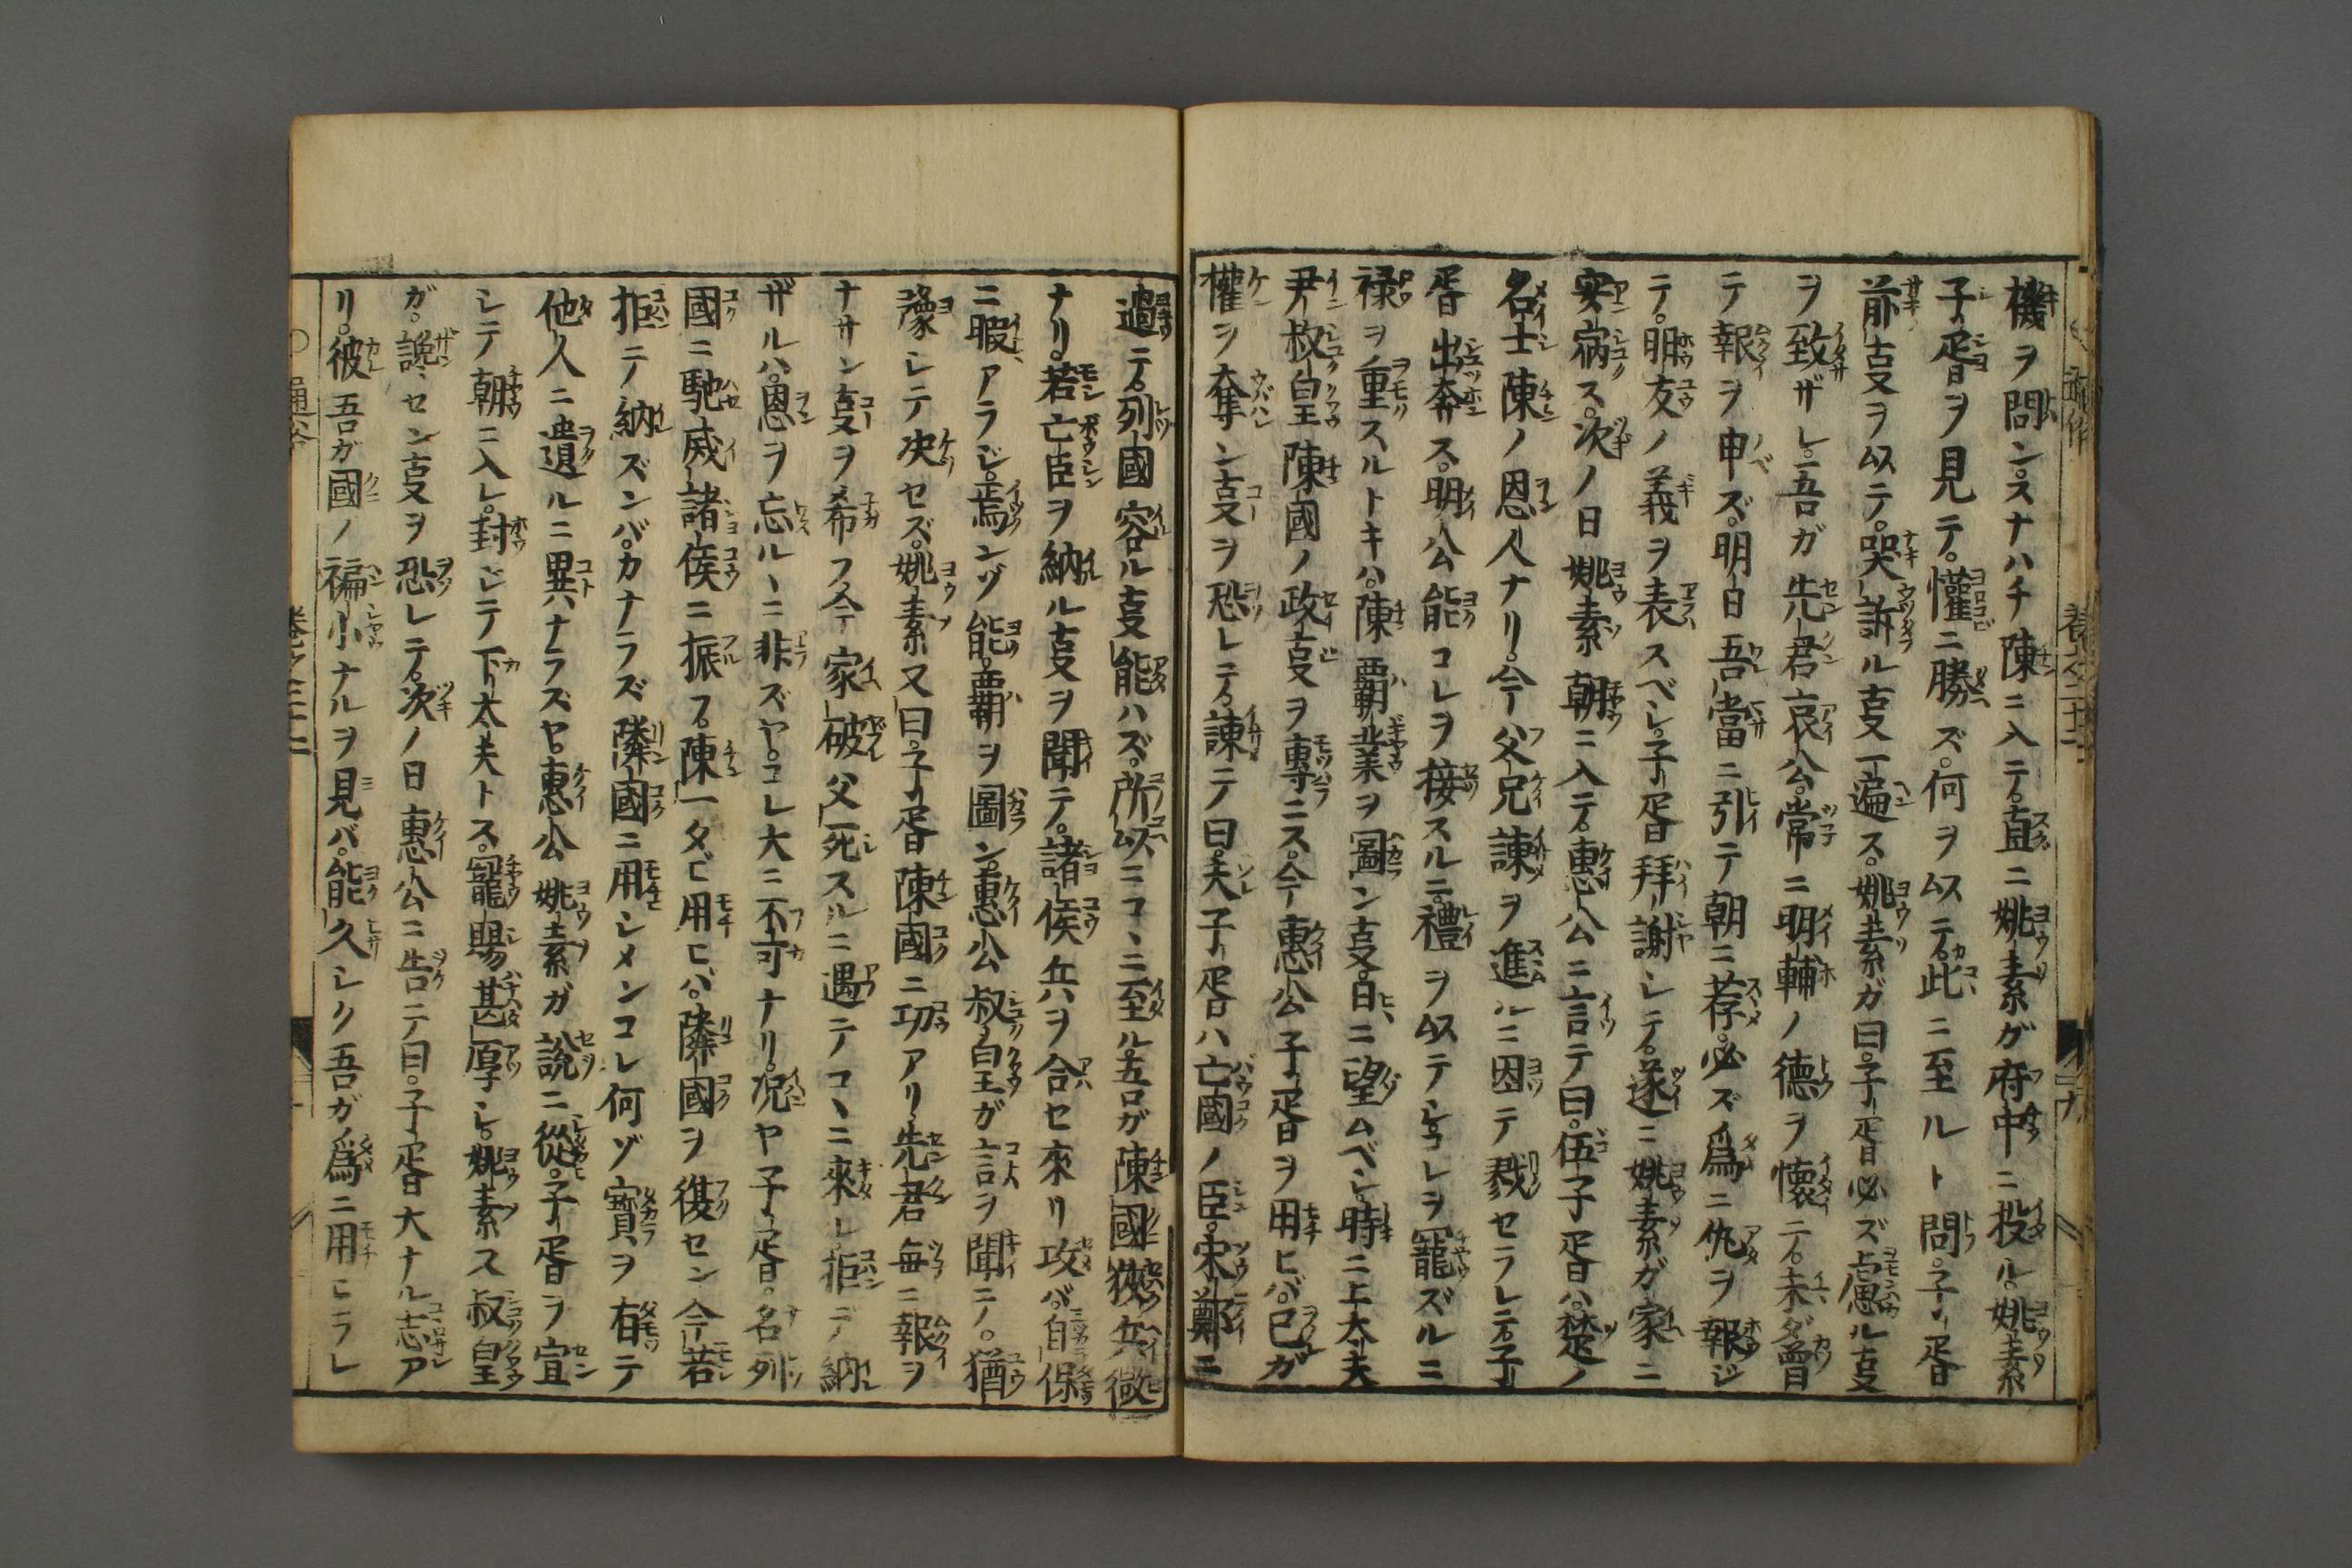 機ヲ問ン。スナハチ陳ニ入テ。直ニ姚素ガ府中ニ投ル。姚素
子胥ヲ見テ。懽ニ勝ズ。何ヲ以テカ此ニ至ルト問。子胥
前㕝ヲ以テ。哭訴ル㕝一遍ス。姚素ガ曰。子胥必ズ慮ル㕝
ヲ致ザレ。吾ガ先君哀公。常ニ明輔ノ德ヲ懷テ。未ダ曾
テ報ヲ申ズ。明日吾當ニ引テ朝ニ荐。必ズ爲ニ仇ヲ報ジ
テ。朋友ノ義ヲ表スベレ。子胥拜謝レテ。遂ニ姚素ガ家ニ
安宿ス。次ノ日姚素朝ニ入テ。惠公ニ言テ曰。伍子胥ハ楚ノ
名士陳ノ恩人ナリ。今父兄諫ヲ進ルニ因テ戮セラレテ。子
胥出奔ス。明公能コレヲ接スルニ。禮ヲ以テレコレヲ寵ズルニ
禄ヲ重スルトキハ。陳覇業ヲ圖ン㕝。日ニ望ムベレ。時ニ上大夫
尹叔皇陳國ノ政㕝ヲ專ニス。今惠公子胥ヲ用ヒバ。己ガ
權ヲ奪ン㕝ヲ恐レテ。諫テ曰。夫子胥ハ亡國ノ臣。宋鄭ニ
過テ。列國容ル㕝能ハズ。所以ニコヽニ至ル。吾ガ陳國狹兵微
ナリ。若亡臣ヲ納ル㕝ヲ聞テ。諸侯兵ヲ合セ來リ攻バ。自保
ニ暇アラジ。焉ンゾ能覇ヲ圖ン。惠公叔皇ガ言ヲ聞テ。猶
豫レテ决セズ。姚素又曰。子胥陳國ニ功アリ。先君毎ニ報ヲ
ナサン㕝ヲ希フ今家破父死スルニ遇テコヽニ來レ拒テ納
ザルハ。恩ヲ忘ルヽニ非ズヤ。コレ大ニ不可ナリ。况ヤ子胥。名列
國ニ馳威諸侯ニ振フ。陳一タビ用ヒバ。隣國ヲ復セン今若
拒テ納ズンバ。カナラズ隣國ニ用シメンコレ何ゾ寳ヲ有テ
他人ニ遺ルニ異ナラズヤ。惠公姚素ガ說ニ從。子胥ヲ宣
レテ朝ニ入レ。封ジテ下大夫トス。寵賜甚厚レ。姚素ス叔皇
ガ。讒セン㕝ヲ恐レテ。次ノ日惠公ニ告テ曰。子胥大ナル志ア
リ。彼吾ガ國ノ褊小ナルヲ見バ。能久レク吾ガ爲ニ用ヒラレ